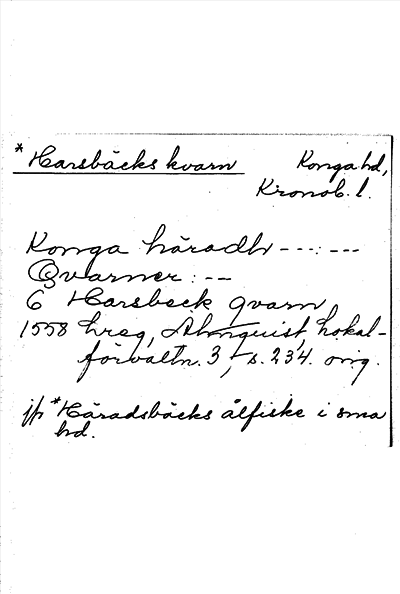 * Harsbäcks kvarn Konga hd,
Kronob. l.
Konga häradh - - - : - - -
Qvarner : - -
6 Harsbeck qvarn
1558 hreg, Almquist, Lokal-
förvaltn. 3, s. 234. orig.
jfr *Häradsbäcks ålfiske i sma
hd.